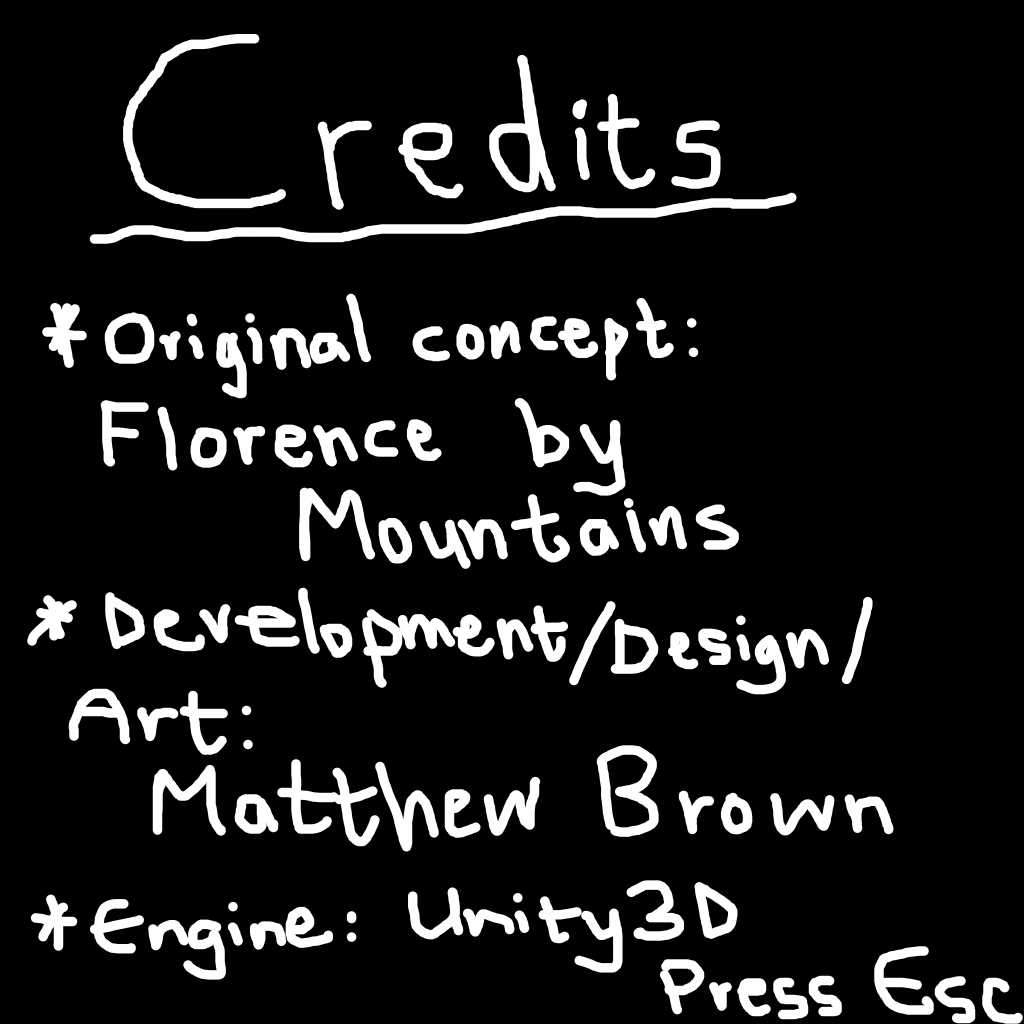 Credits
*Original concept:
Florence by
Mountains
*Development/Design/
Art:
Matthew Brown
*Engine: Unity3D
Press Esc